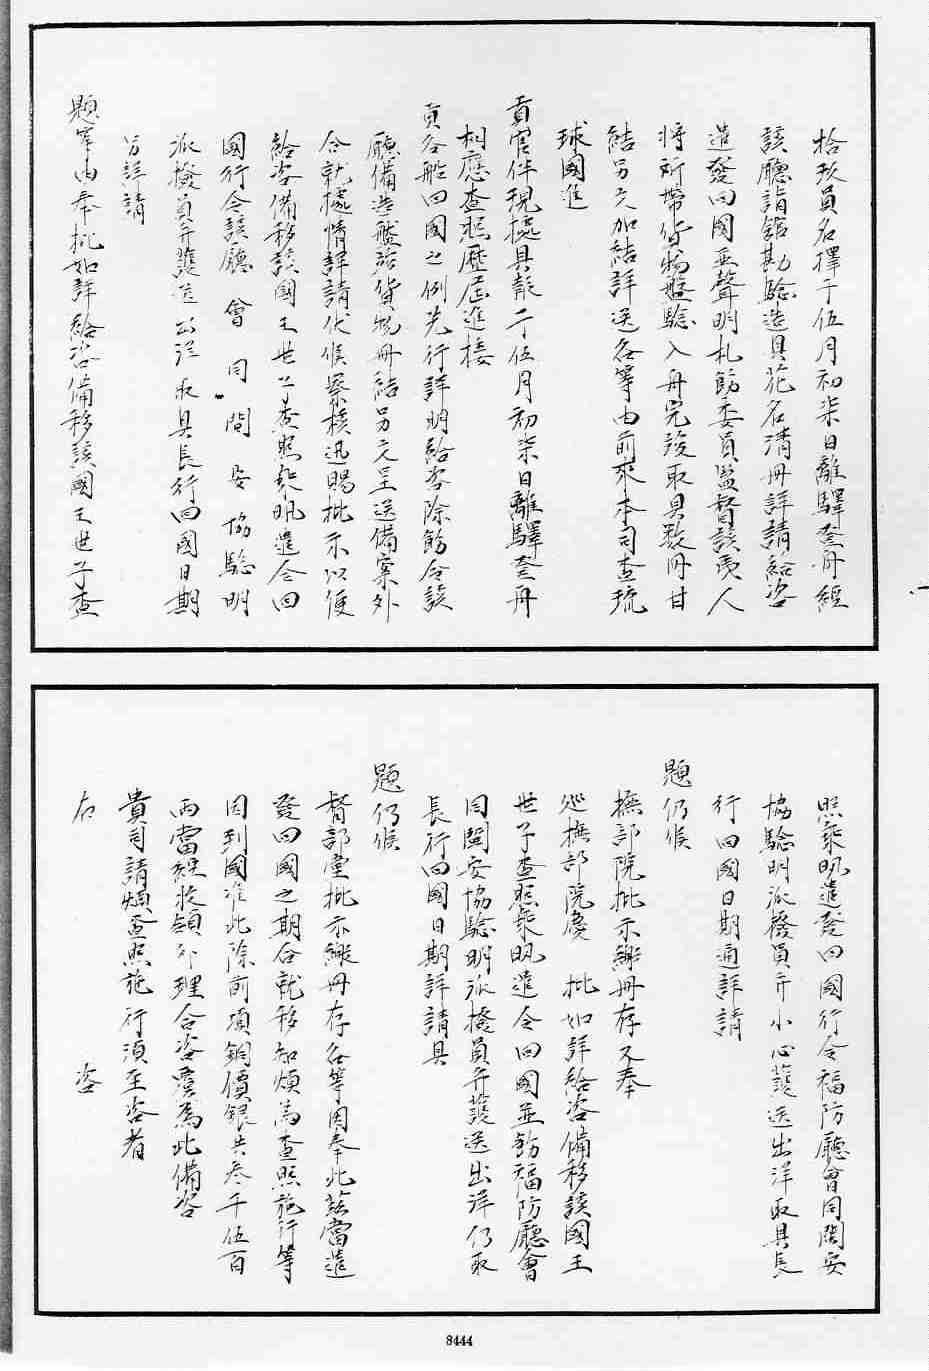 拾玖員名擇于伍月初柒日離驛登舟經
該廳詣舘勘驗造具花名清冊詳請給咨
遣發回國並聲明札飭委員監督該夷人
將所帶貨物盤驗入舟完竣取具数冊甘
結另文加結詳送各等由前來本司查琉
球國進
貢官伴現據具報于伍月初柒日離驛登舟
相應查照歷屆進接
貢各船回國之例先行詳明給咨除飭令該
廳備造盤驗貨物冊結另文呈送備案外
合就據情詳請伏候察核迅賜批示以便
給咨備移該國王世子查照來帆遣令回
國行令該廳會同閩安協驗明
派撥員弁護送出洋取具長行回國日期
另詳請
題等由奉批如詳給咨備移該國王世子查
照來帆遣發回國行令福防廳會同閩安
協驗明派撥員弁小心護送出洋取具長
行回國日期通詳請
題仍候
撫部院批示繳冊存又奉
巡撫部院慶 批如詳給咨備移該國王
世子查照來帆遣令回國並飭福防廳會
同閩安協驗明派撥員弁護送出洋仍取
長行回國日期詳請具
題仍候
督部堂批示繳冊存各等因奉此茲當遣
發回國之期合就移知煩為查照施行等
因到國准此除前項銅價銀共叁千伍百
兩當經收領外理合咨覆為此備咨
貴司請煩查照施行須至咨者
右 咨
8444